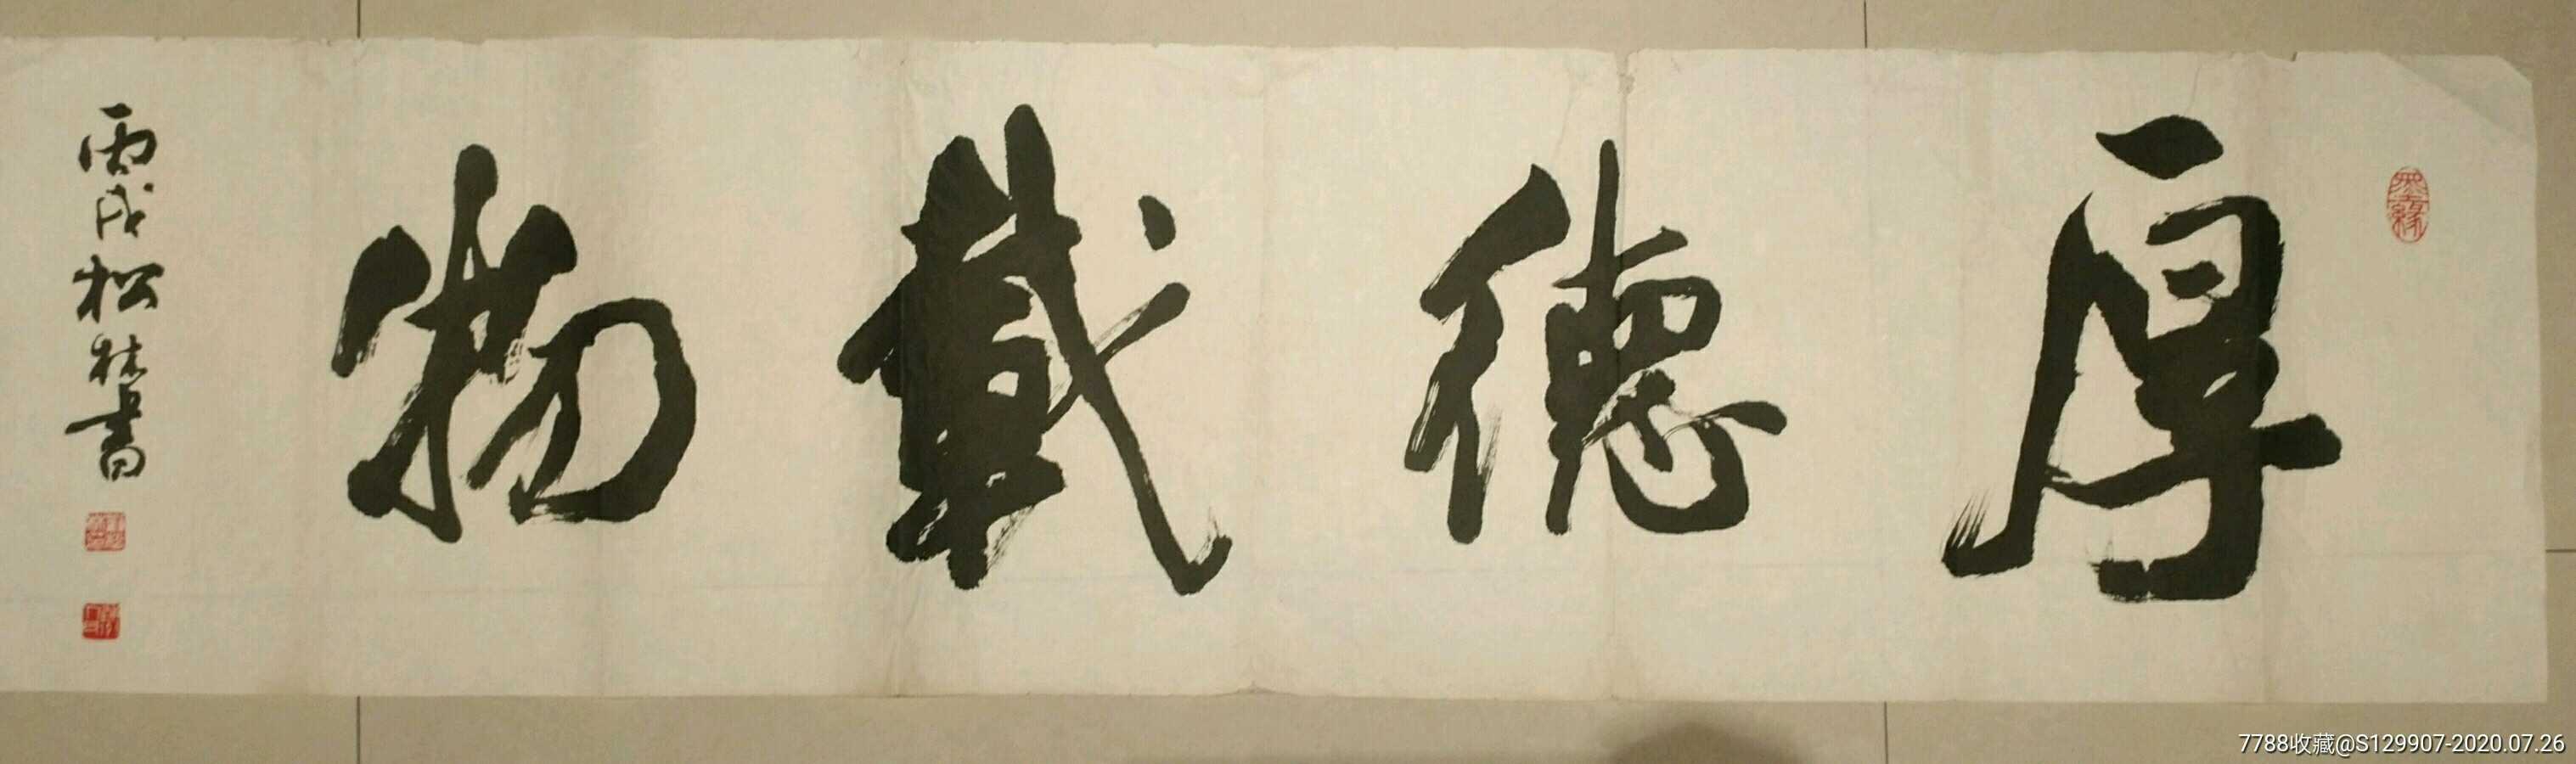 厚德載物
墨緣
丙戌松林書
7788收藏@S129907-2020.07.26